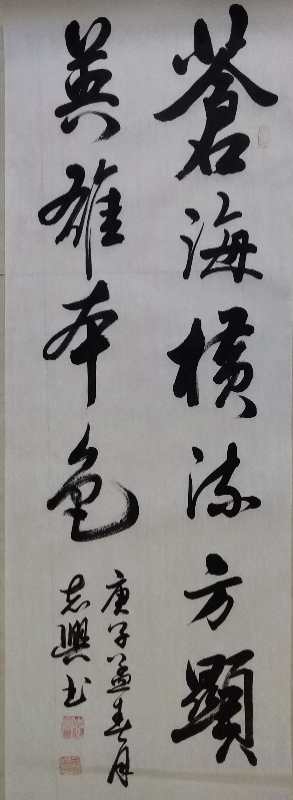 蒼海橫流方顯
英雄本色
庚子孟春月
志興书